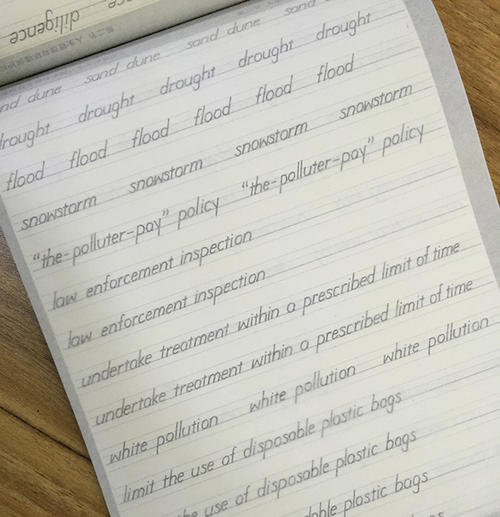 diligence
sand dune sand dune sand
drought drought drought drought drought
flood flood flood flood flood flood
snowstorm snowstorm snowstorm snowstorm
"the-polluter-pay" policy "the-polluter-pay" policy
law enforcement inspection
law enforcement inspection
undertake treatment within a prescribed limit of time
undertake treatment within a prescribed limit of time
white pollution white pollution white pollution
limit the use of disposable plastic bags
the use of disposable plastic bags
plastic bags